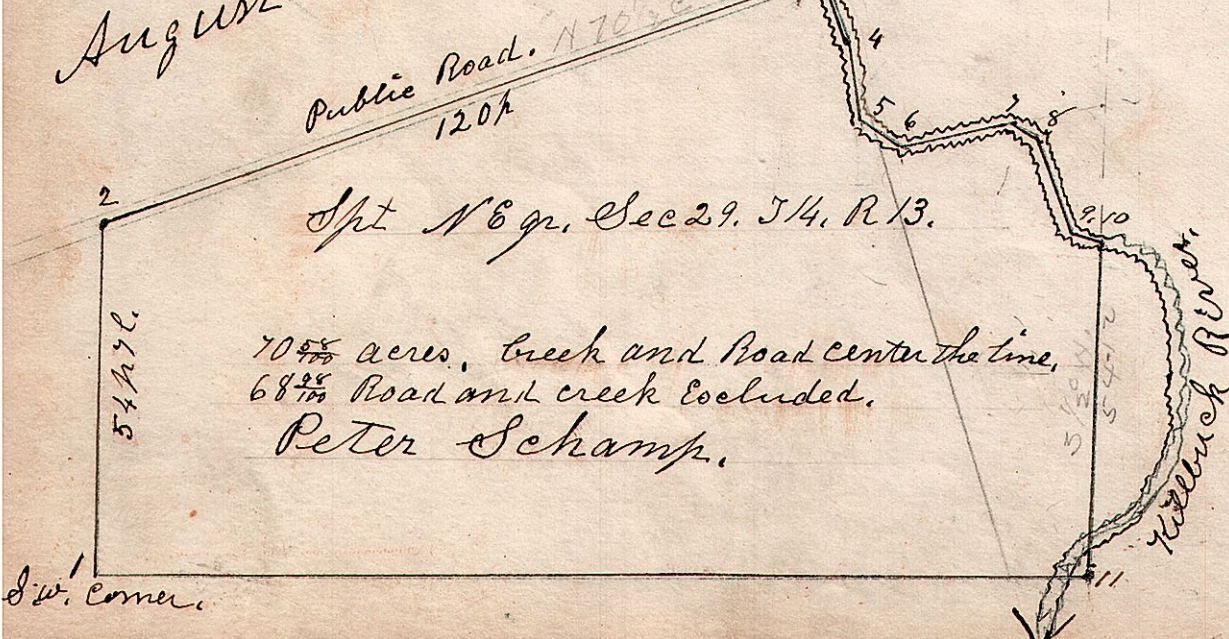 August
N 70
Public Road.
120p
4
5
6
7
8
2
Spt NE qr. Sec 29. T 14. R 13.
9.10
54p 7l.
70 58/100 acres. Creek and Road center the line.
68 98/100 Road and creek Excluded.
Peter Schamp.
Killbuck River.
1
S.W. Corner.
11